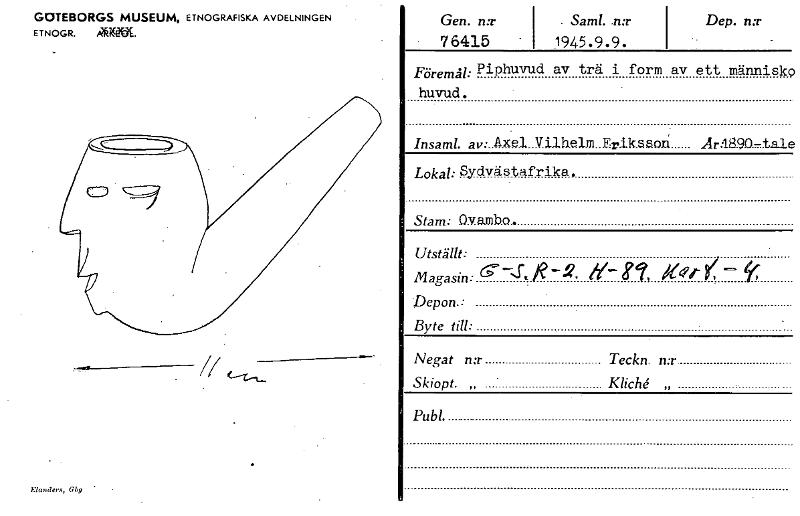 GÖTEBORGS MUSEUM, ETNOGRAFISKA AVDELNINGEN
ETNOGR. ARKEOL.
11 cm
Elanders, Gbg
Gen. n:r Saml. n:r Dep. n:r
76415 1945.9.9.
Föremål: Piphuvud av trä i form av ett människo
huvud.
Insaml. av: Axel Vilhelm Eriksson År 1890-tale
Lokal: Sydvästafrika.
Stam: Ovambo.
Utställt:
Magasin: G-S. R-2. H-89. Kart. - 4.
Depon.:
Byte till:
Negat n:r Teckn. n:r
Skiopt. „ Kliché „
Publ.